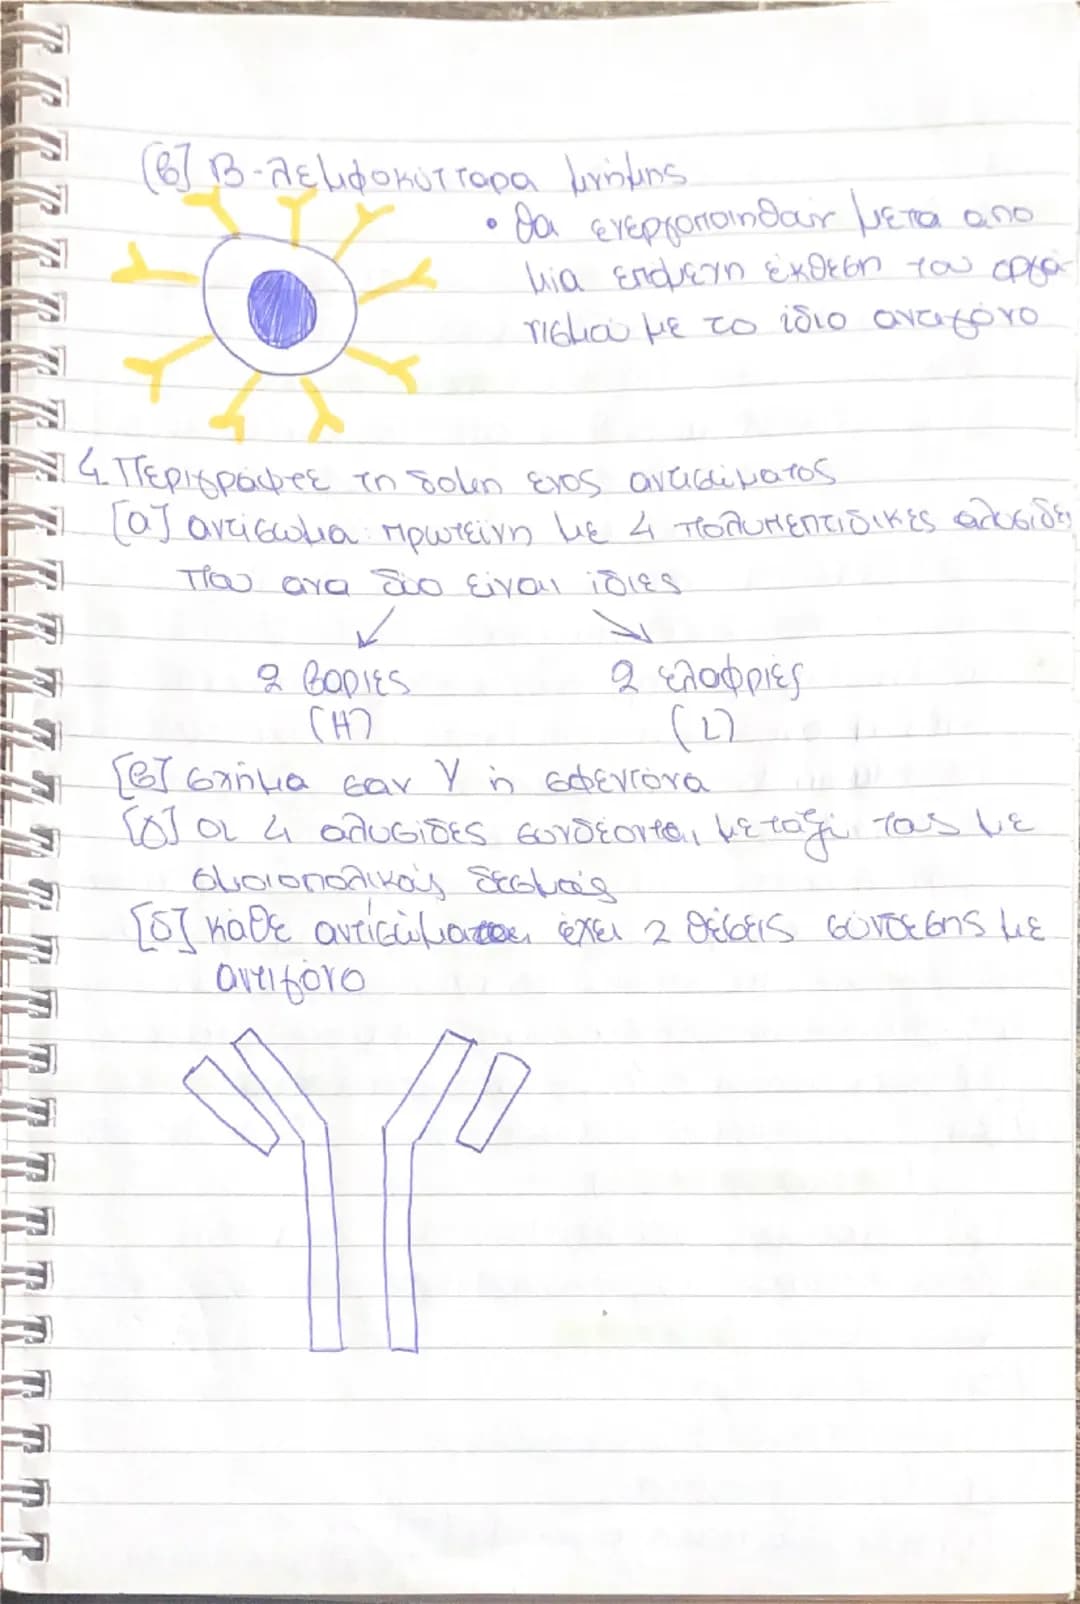 [β] Β-λεμφοκύτταρα μνήμης
• θα ενεργοποιηθούν μετά από
μια επόμενη έκθεση του οργα-
νισμού με το ίδιο αντιγόνο
4. Περιγράφτε τη δομή ενός αντισώματος
[α] αντίσωμα: πρωτεΐνη με 4 πολυπεπτιδικές αλυσίδες
που ανα δύο είναι ίδιες
2 βαριές 2 ελαφριές
(H) (L)
[β] σχήμα σαν Υ ή σφεντόνα
[γ] οι 4 αλυσίδες συνδέονται μεταξύ τους με
ομοιοπολικούς δεσμούς
[δ] κάθε αντίσωμα έχει 2 θέσεις σύνδεσης με
αντιγόνο